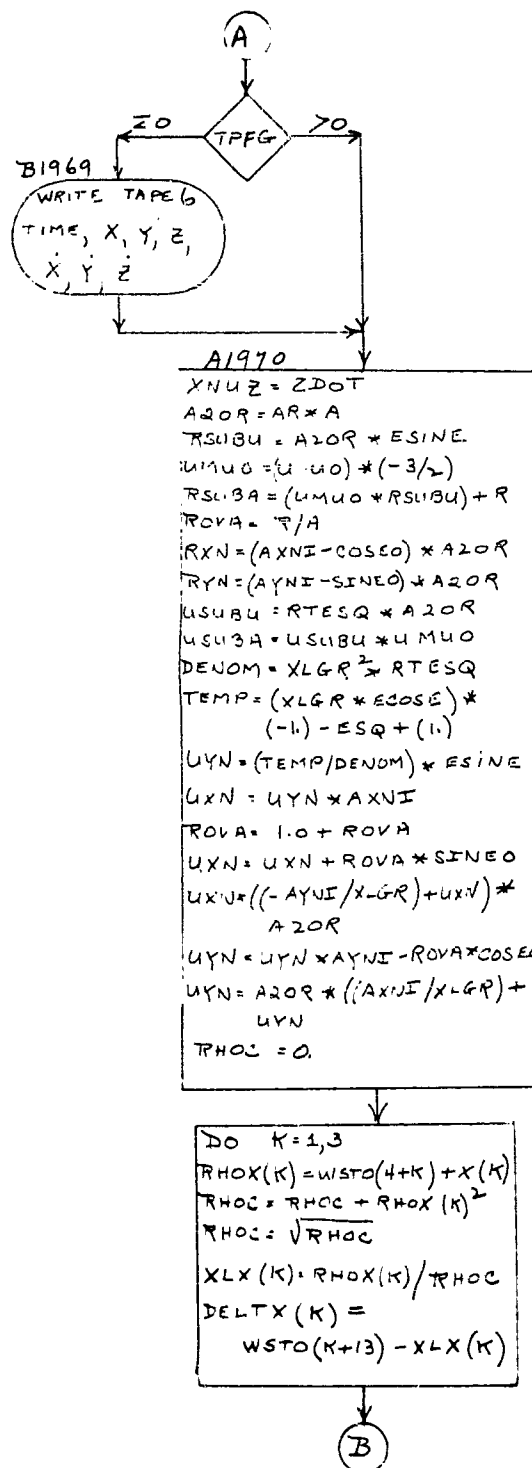 A
≤0
TPFG
>0
B1969
WRITE TAPE 6
TIME, X, Y, Z,
Ẋ, Ẏ, Ż
A1970
XNUZ = ZDOT
A2OR = AR * A
RSUBU = A2OR * ESINE
UMUO = (U-UO) * (-3/2)
RSUBA = (UMUO * RSUBU) + R
ROVA = R/A
RXN = (AXNI-COSEO) * A2OR
RYN = (AYNI-SINEO) * A2OR
USUBU = RTESQ * A2OR
USUBA = USUBU * UMUO
DENOM = XLGR² * RTESQ
TEMP = (XLGR * ECOSE) *
(-1.) - ESQ + (1.)
UYN = (TEMP/DENOM) * ESINE
UXN = UYN * AXNI
ROVA = 1.0 + ROVA
UXN = UXN + ROVA * SINEO
UXN = ((-AYNI/XLGR) + UXN) *
A2OR
UYN = UYN * AYNI - ROVA * COSEO
UYN = A2OR * ((AXNI/XLGR) +
UYN
RHOC = 0.
DO K = 1,3
RHOX(K) = WSTO(4+K) + X(K)
RHOC = RHOC + RHOX(K)²
RHOC = √RHOC
XLX(K) = RHOX(K)/RHOC
DELTX(K) =
WSTO(K+13) - XLX(K)
B